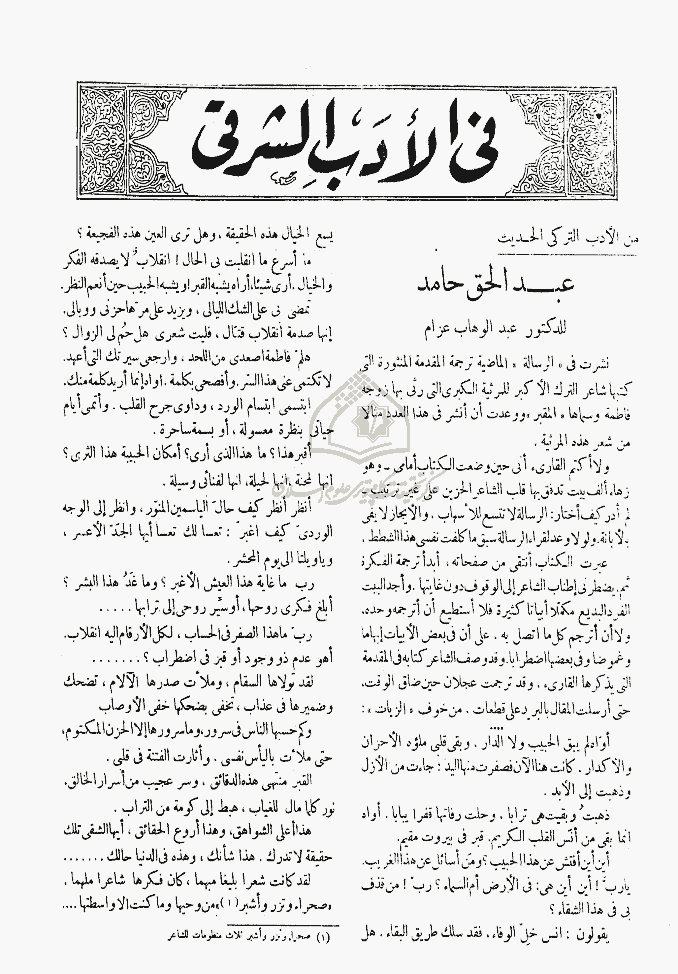 في الأدب الشرقي
من الأدب التركي الحديث
عبد الحق حامد
للدكتور عبد الوهاب عزام
نشرت في « الرسالة » الماضية ترجمة المقدمة المنثورة التي
كتبها شاعر الترك الأكبر للمرثية الكبرى التي رثى بها زوجه
فاطمة وسماها « المقبر » ووعدت أن أنشر في هذا العدد مثالا
من شعر هذه المرثية .
ولا أكتم القارىء أني حين وضعت الكتاب أمامي ـ وهو
زهاء ألف بيت تدفق بها قلب الشاعر الحزين على غير ترتيب ـ
لم أدر كيف أختار : الرسالة لا تتسع للأسهاب . والايجاز لا يفي
بالأبانة . ولولا وعد لقراء الرسالة سبق ما كلفت نفسي هذا الشطط .
عبرت الكتاب أنتقي من صفحاته ، أبدأ ترجمة الفكرة
ثم يضطرني إطناب الشاعر إلى الوقوف دون غايتها . وأجد البيت
الفرد البديع مكملا أبياتا كثيرة فلا أستطيع أن أترجمه وحده ،
ولا أن أترجم كل ما اتصل به . على أن في بعض الأبيات إبهاما
وغموضا وفي بعضها اضطرابا . وقد وصف الشاعر كتابه في المقدمة
التي يذكرها القارىء . وقد ترجمت عجلان حين ضاق الوقت ،
حتى أرسلت المقال بالبريد على قطعات . من خوف « الزيات » :
....
أواه لم يبق الحبيب ولا الدار . وبقي قلبي ملؤه الأحزان
والاكدار . كانت هنا الآن فصفرت منها اليد : جاءت من الأزل
وذهبت إلى الأبد .
ذهبت وبقيت هي ترابا . وحلت رفاتها قفرا يبابا . أواه
انما بقي من أنس القلب الكريم . قبر في بيروت مقيم .
أين أين أفتش عن هذا الحبيب ؟ ومن أسائل عن هذا الغريب .
يارب ! أين أين هي : في الأرض أم السماء ؟ رب ! من قذف
بي في هذا الشقاء ؟
يقولون : انس خل الوفاء . فقد سلك طريق البقاء . هل
يسع الخيال هذه الحقيقة ، وهل ترى العين هذه الفجيعة ؟
ما أسرع ما انقلبت بي الحال ! انقلاب لا يصدقه الفكر
والخيال . أرى شيئا ، أراه يشبه القبر ! ويشبه الحبيب حين أنعم النظر .
تمضي بي على الشك الليالي ، ويزيد على مرها حزني ووبالي .
إنها صدمة انقلاب قتال . فليت شعري هل حم لي الزوال ؟
هلم فاطمة اصعدي من اللحد ، وارجعي سيرتك التي أعهد .
لا تكتمي عني هذا السر . وأفصحي بكلمة . اواه إنما أريد كلمة منك .
ابتسمي ابتسام الورد ، وداوي جرح القلب . وأتمي أيام
حياتي بنظرة معسولة ، أو بسمة ساحرة .
أقبر هذا ؟ ما هذا الذي أرى ؟ أمكان الحبيبة هذا الثرى ؟
إنها لمحنة . انها لحيلة . انها لفنائي وسيلة .
انظر أنظر كيف حال الياسمين المنور ، وانظر إلى الوجه
الوردي كيف اغبر : تعسا لك تعسا أيها الجد الأعسر ،
وياويلتا الى يوم المحشر .
رب ما غاية هذا العيش الأغبر ؟ وما غد هذا البشر ؟
أبلغ فكري روحها ، أو سيّر روحي إلى ترابها . . . . .
رب ما هذا الصفر في الحساب ، لكل الأرقام اليه انقلاب .
أهو عدم ذو وجود أو قبر في اضطراب ؟ . . . . . . .
لقد تولاها السقام ، وملأت صدرها الآلام ، تضحك
وضميرها في عذاب ، تخفي بضحكها خفي الأوصاب
وكم حسبها الناس في سرور ، وما سرورها إلا الحزن المكتوم ،
حتى ملأت باليأس نفسي . وأثارت الفتنة في قلبي .
القبر منتهى هذه الدقائق ، وسر عجيب من أسرار الخالق .
نور كلما مال للغياب ، هبط إلى كومة من التراب .
هذا أعلى الشواهق ، وهذا أروع الحقائق ، أيها الشقي تلك
حقيقة لا تدرك . هذا شأنك ، وهذه في الدنيا حالك . . . . . . .
لقد كانت شعرا بليغا مبهما ، كان فكرها شاعرا ملهما .
وصحراء وتزر وأشبر (١) من وحيها وما كنت الا واسطتها ....
(١) صحراء وتزر وأشبر ثلاث منظومات للشاعر